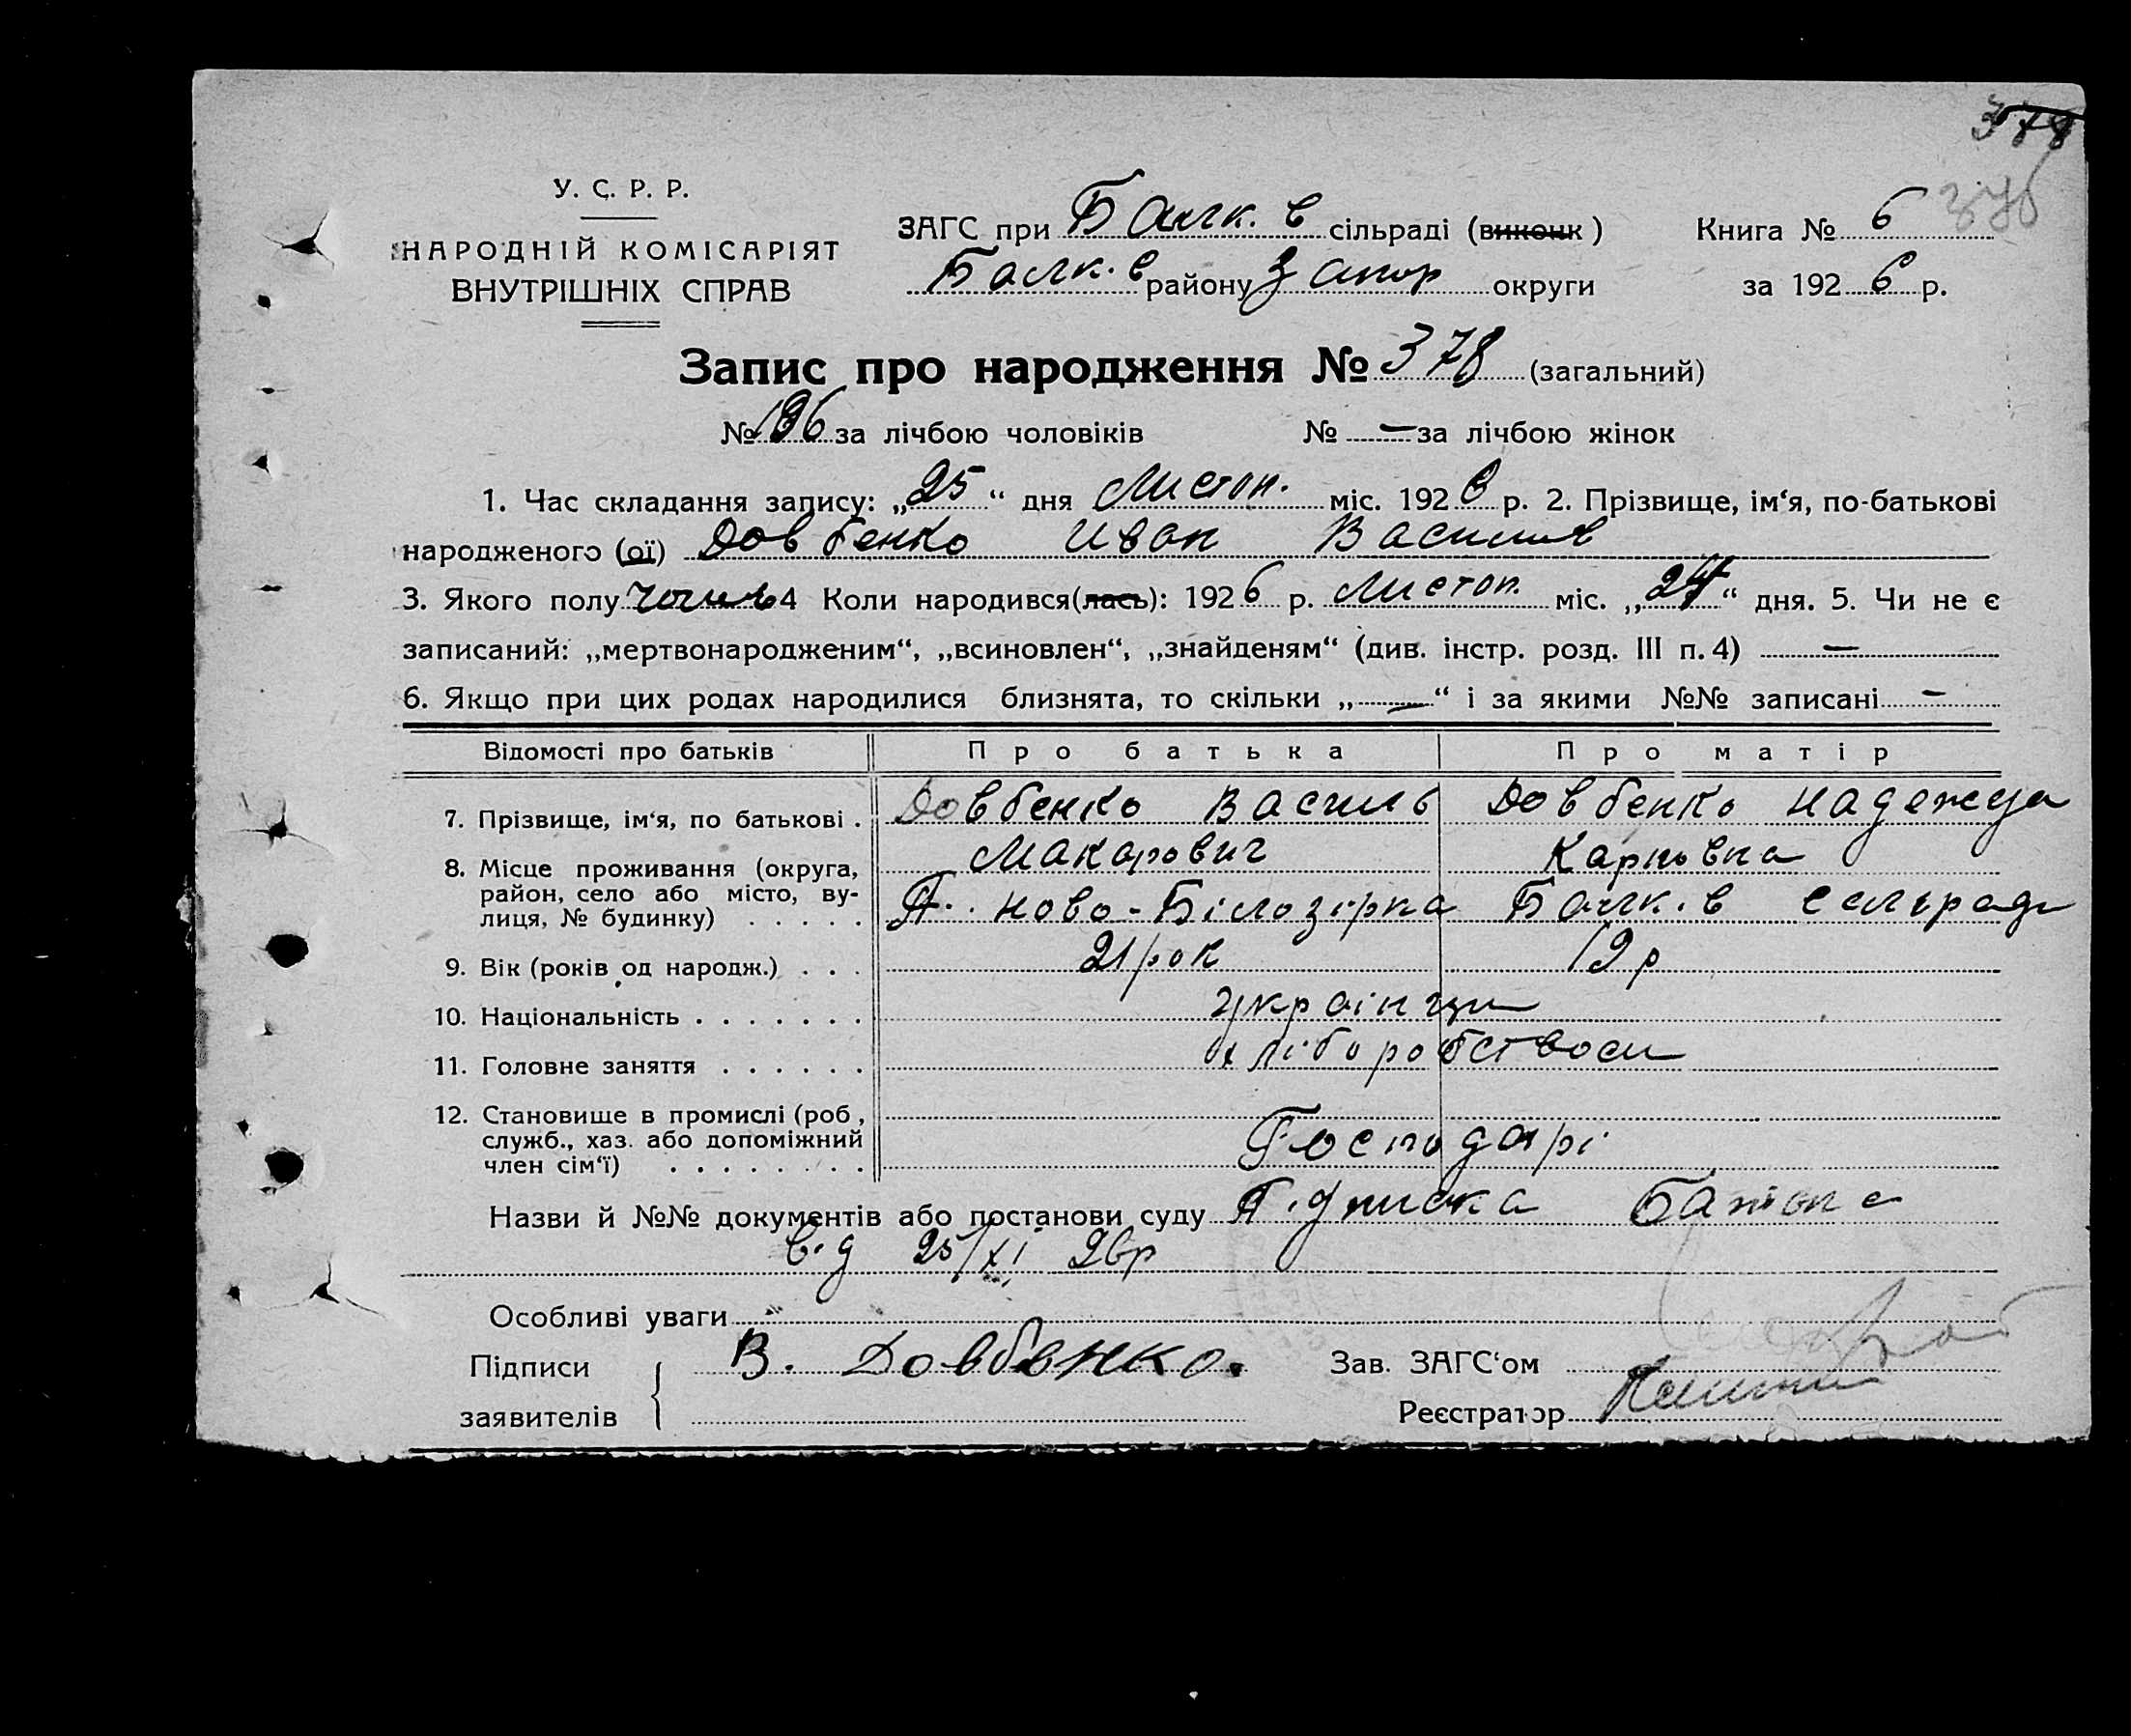 378
376
У. С. Р. Р.
НАРОДНІЙ КОМІСАРІЯТ
ВНУТРІШНІХ СПРАВ
ЗАГС при Балк. в сільраді (виконк)
Балк. в району Запор округи
Книга № 6
за 1926 р.
Запис про народження № 378 (загальний)
№ 196 за лічбою чоловіків № — за лічбою жінок
1. Час складання запису: „25“ дня Листоп. міс. 1926 р. 2. Прізвище, ім‘я, по-батькові
народженого (ої) Довбенко Иван Василів
3. Якого полу 4 Коли народився(лась): 1926 р. Листоп. міс. „24“ дня. 5. Чи не є
записаний: „мертвонародженим“, „всиновлен“, „знайденям“ (див. інстр. розд. III п. 4) —
6. Якщо при цих родах народилися близнята, то скільки „—“ і за якими №№ записані —
Відомості про батьків Про батька Про матір
7. Прізвище, ім‘я, по батькові . Довбенко Василь Довбенко Надежда
Макарович Карповна
8. Місце проживання (округа,
район, село або місто, ву-
лиця, № будинку) . . . . . П. Ново-Білозірка Балк. в сельради
9. Вік (років од народж.) . . . 21 рок 19 р
10. Національність . . . . . . . українци
11. Головне заняття . . . . . . хліборобством
12. Становище в промислі (роб,
служб., хаз. або допоміжний
член сім‘ї) . . . . . . . . Господарі
Назви й №№ документів або постанови суду Підписка батька
від 25/XI 26р
Особливі уваги
Підписи
заявителів
В. Довбенко.
Зав. ЗАГС‘ом
Реєстратор